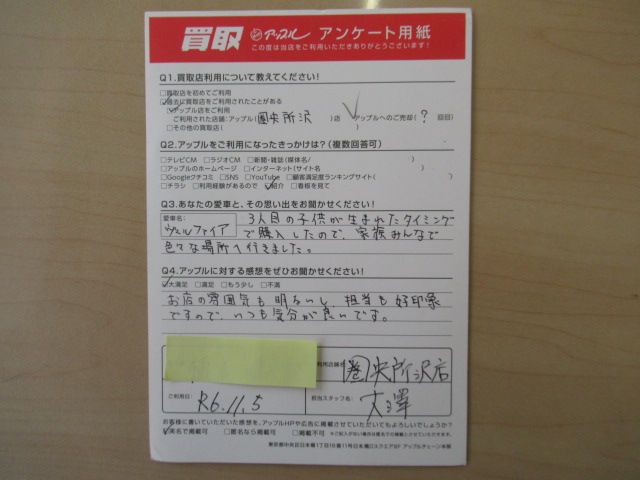 買取 アップル アンケート用紙
この度は当店をご利用いただきありがとうございます!
Q1.買取店利用について教えてください!
□買取店を初めてご利用
□過去に買取店をご利用されたことがある
□アップル店をご利用
ご利用された店舗:アップル(圏央所沢)店 アップルへのご売却(? 回目)
□その他の買取店( )
Q2.アップルをご利用になったきっかけは?(複数回答可)
□テレビCM □ラジオCM □新聞・雑誌(媒体名/ )
□アップルのホームページ □インターネット(サイト名 )
□Googleクチコミ □SNS □YouTube □顧客満足度ランキングサイト( )
□チラシ □利用経験があるので □紹介 □看板を見て
Q3.あなたの愛車と、その思い出をお聞かせください!
愛車名: ヴェルファイア
3人目の子供が生まれたタイミング
で購入したので、家族みんなで
色々な場所へ行きました。
Q4.アップルに対する感想をぜひお聞かせください!
□大満足 □満足 □もう少し □不満
お店の雰囲気も明るいし、担当も好印象
ですので、いつも気分が良いです。
利用店舗名 圏央所沢店
ご利用日: R6.11.5 担当スタッフ名: 大澤
お客様に書いていただいた感想を、アップルHPや広告に掲載させていただいてもよろしいでしょうか?
□実名で掲載可 □匿名なら掲載可 □掲載不可 ※ご記入がない場合は匿名での掲載とさせていただきます。
東京都中央区日本橋1丁目16番11号日本橋Dスクエア5F アップルチェーン本部